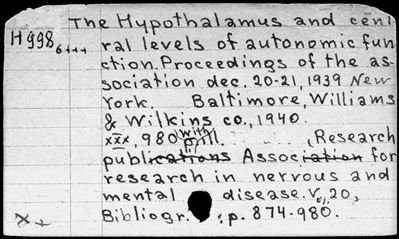 The Hypothalamus and cent
H998 6+++ ral levels of autonomic fun
ction. Proceedings of the as-
sociation dec. 20-21, 1939 New
York. Baltimore, Williams
& Wilkins co., 1940.
xxx, 980 p. with ill. , Research
publications Association for
research in nervous and
mental disease. V. 20,
Bibliogr. : p. 874-980.
x+